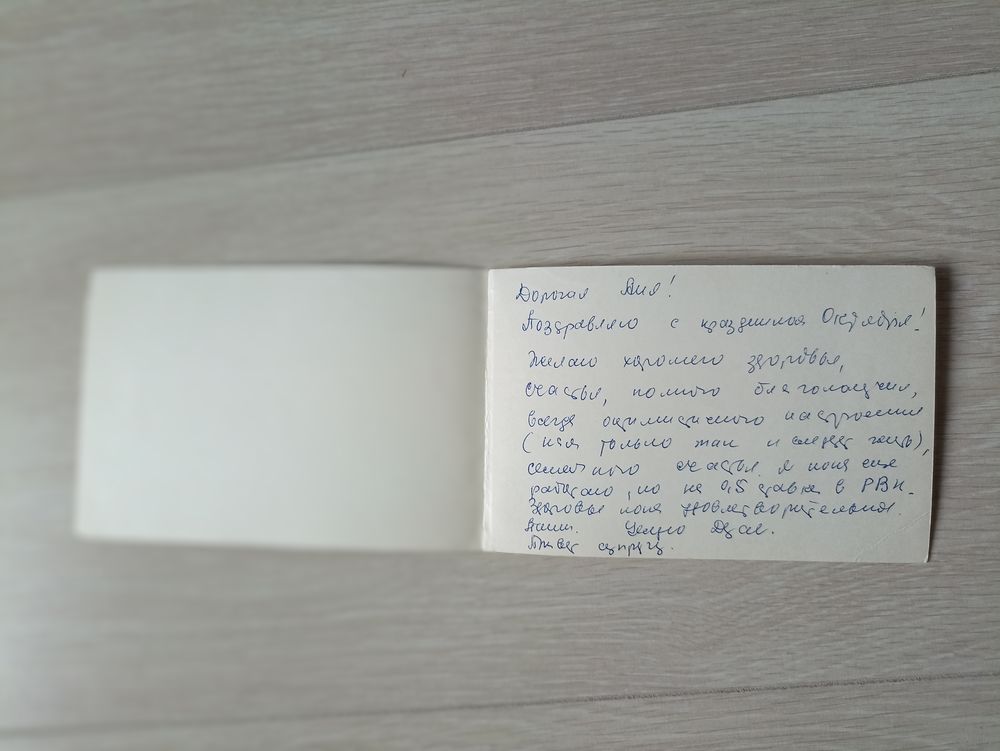 Дорогая Аня!
Поздравляю с праздником Октября!
Желаю хорошего здоровья,
счастья, полного благополучия,
всегда оптимистичного настроения
(нам только так и следует жить),
семейного счастья. Я пока еще
работаю, но на 0,5 ставки в РВК.
Здоровье пока удовлетворительное.
Пиши. Целую
Привет супругу.